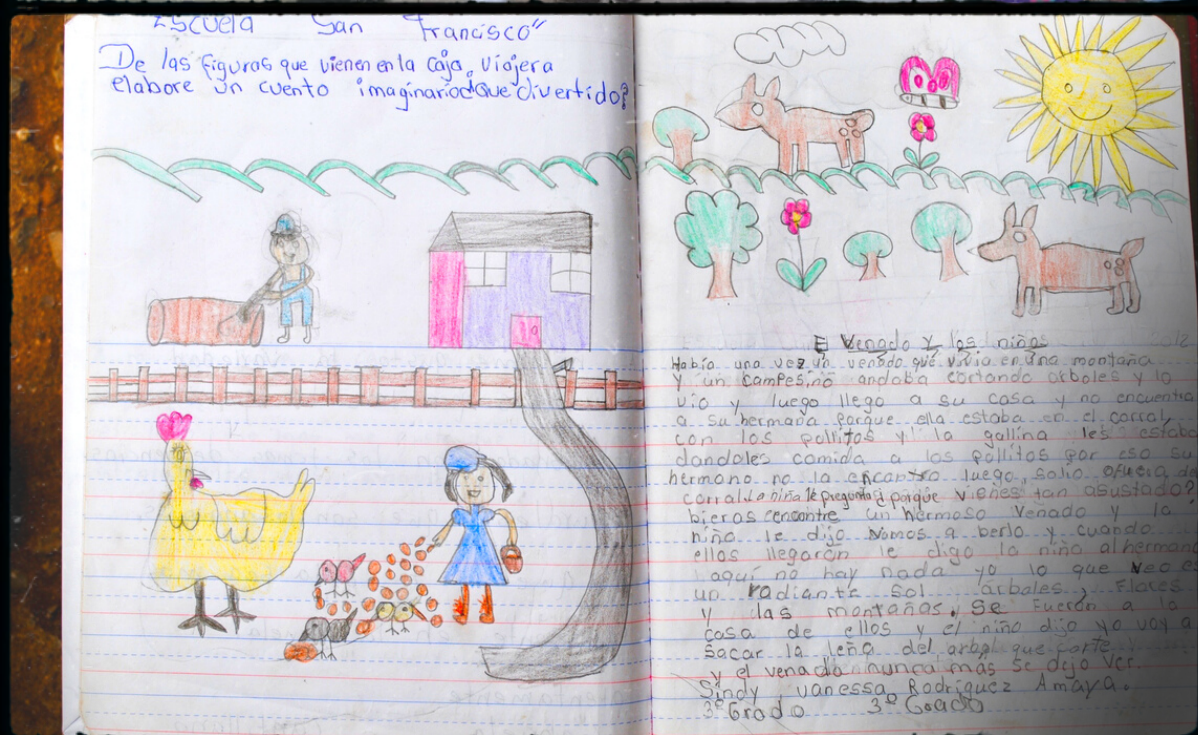 Escuela San Francisco"
De las figuras que vienen en la caja, viajera
elabore un cuento imaginario que divertido?
El Venado y los niños
Había una vez un venado que vivia en una montaña
y un campesino andaba cortando arboles y lo
vio y luego llego a su casa y no encuentra
a su hermana porque ella estaba en el corral
con los pollitos y la gallina les estaba
dandoles comida a los pollitos por eso su
hermano no la encontro luego, salio afuera de
corral la niña le pregunta ¿ porque vienes tan asustado?
bieras encontre un hermoso venado y la
niña le dijo vamos a berlo y cuando
ellos llegarón le digo la niña al hermano
aquí no hay nada yo lo que veo es
un radiante sol, árboles, Flores
y las montañas. Se fuerón a la
casa de ellos y el niño dijo yo voy a
sacar la leña del arbol que corte
y el venado nunca más se dejo ver.
Sindy Vanessa Rodríguez Amaya.
3º Grado 3º Grado